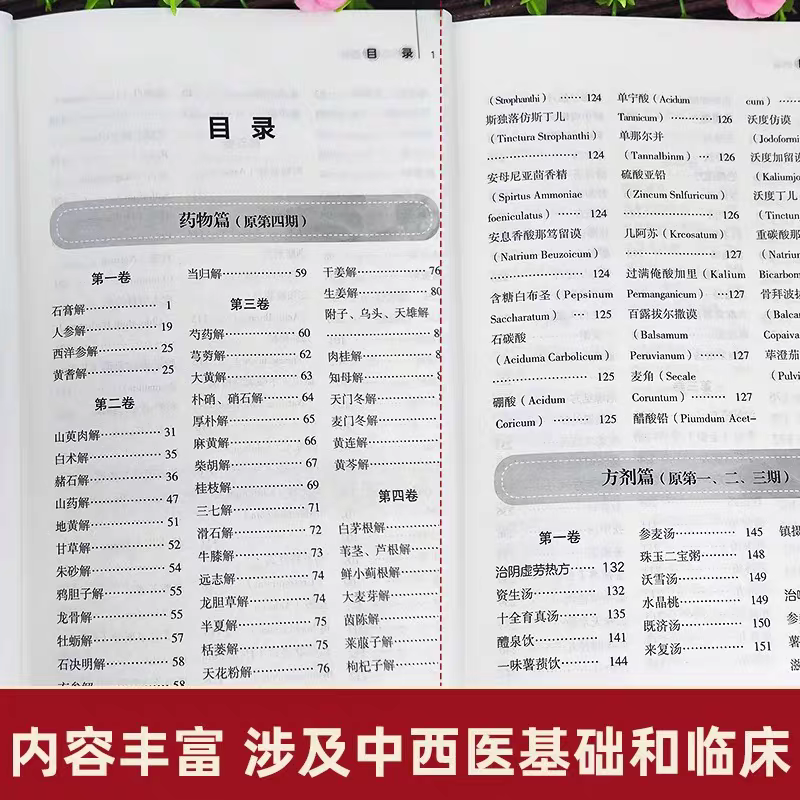 目 录 1
目 录
药物篇（原第四期）
第一卷
石膏解 1
人参解 19
西洋参解 25
黄耆解 25
第二卷
山萸肉解 31
白术解 35
赭石解 36
山药解 47
地黄解 51
甘草解 52
朱砂解 54
鸦胆子解 55
龙骨解 55
牡蛎解 57
石决明解 58
当归解 59
第三卷
芍药解 60
芎䓖解 62
大黄解 63
朴硝、硝石解 64
厚朴解 65
麻黄解 66
柴胡解 67
桂枝解 69
三七解 71
滑石解 72
牛膝解 73
远志解 74
龙胆草解 74
半夏解 75
栝蒌解 75
天花粉解 76
干姜解 76
生姜解 80
附子、乌头、天雄解
肉桂解
知母解
天门冬解
麦门冬解
黄连解
黄芩解
第四卷
白茅根解
苇茎、芦根解
鲜小蓟根解
大麦芽解
茵陈解
莱菔子解
枸杞子解
(Strophanthi) 124
斯独落仿斯丁儿
(Tinctura Strophanthi)
124
安母尼亚茴香精
(Spirtus Ammoniae
foeniculatus) 124
安息香酸那笃留谟
(Natrium Beuzoicum)
124
含糖白布圣 (Pepsinum
Saccharatum) 125
石碳酸
(Aciduma Carbolicum)
125
硼酸 (Acidum
Coricum) 125
单宁酸 (Acidum
Tannicum) 126
单那尔并
(Tannalbinm) 126
硫酸亚铅
(Zincum Snlfuricum)
126
几阿苏 (Krcosatum)
127
过满俺酸加里 (Kalium
Permanganicum) 127
百露拔尔撒谟
(Balsamum
Peruvianum) 127
麦角 (Secale
Coruntum) 127
醋酸铅 (Piumdum Acet-
cum)
沃度仿谟
(Jodoformi
沃度加留谟
(Kaliumjo
沃度丁儿
(Tinctun
重碳酸
(Natriun
Bicarbom
骨拜波拔
(Balcar
Copaiva
荜澄茄
(Pulvi
方剂篇（原第一、二、三期）
第一卷
治阴虚劳热方 132
资生汤 132
十全育真汤 135
醴泉饮 141
一味薯蓣饮 144
参麦汤 145
珠玉二宝粥 148
沃雪汤 149
水晶桃 149
既济汤 150
来复汤 151
镇摄
内容丰富 涉及中西医基础和临床